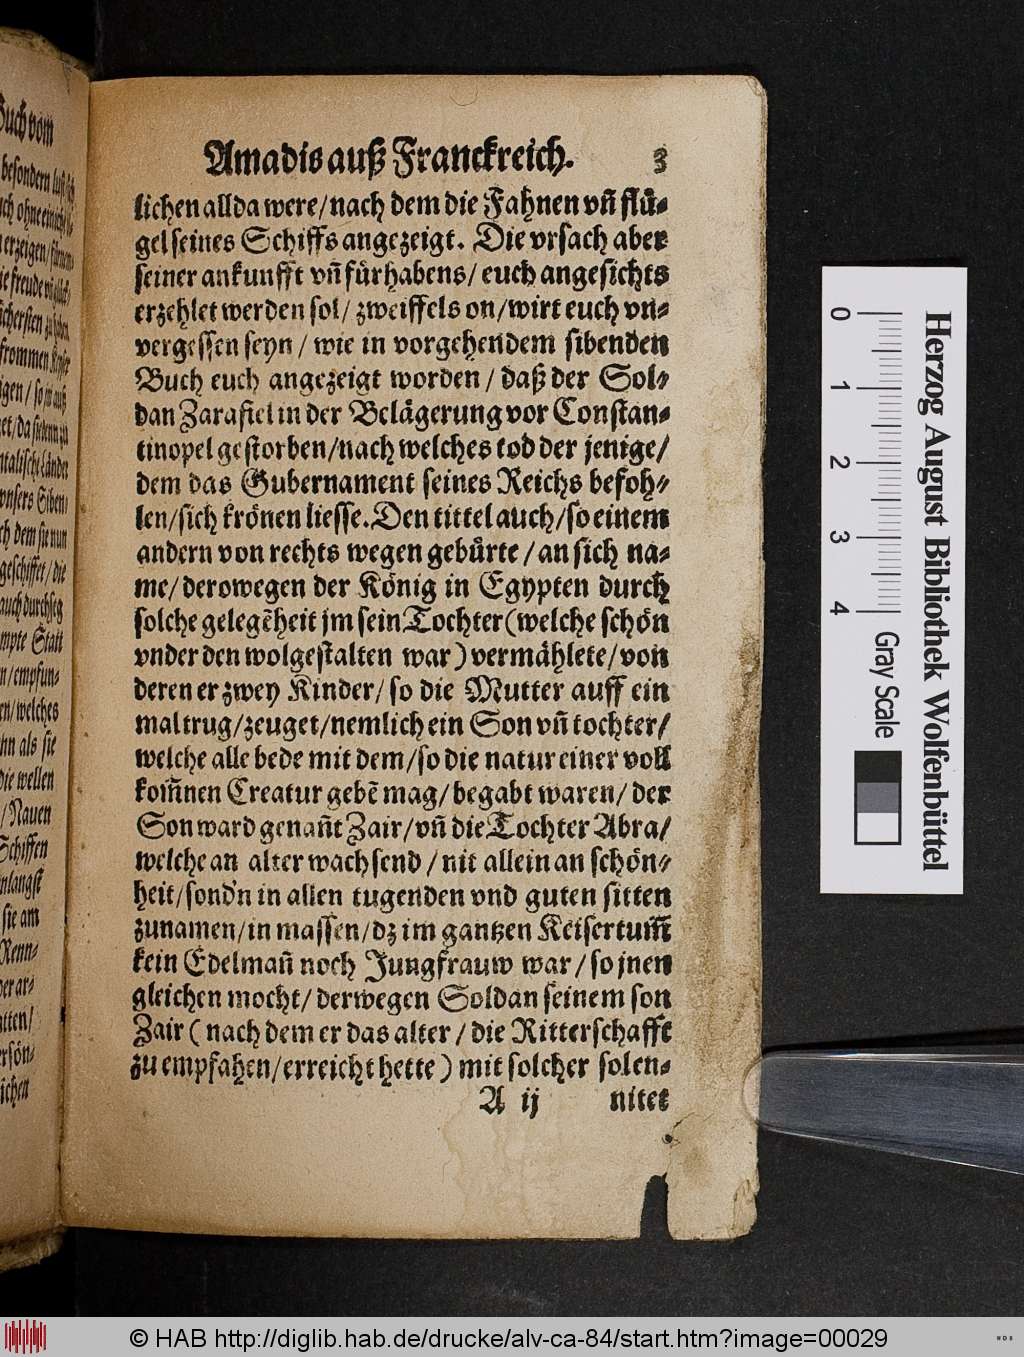 Buch vom
besondern
erzeigen/
frommen
Amadis auß Franckreich. 3
lichen allda were/nach dem die Fahnen vñ flü-
gel seines Schiffs angezeigt. Die vrsach aber
seiner ankunfft vñ fürhabens/ euch angesichts
erzehlet werden sol/ zweiffels on/wirt euch vn-
vergessen seyn/ wie in vorgehendem sibenden
Buch euch angezeigt worden/ daß der Sol-
dan Zarafiel in der Belägerung vor Constan-
tinopel gestorben/nach welches tod der jenige/
dem das Gubernament seines Reichs befoh-
len/sich krönen liesse. Den tittel auch/so einem
andern von rechts wegen gebürte/an sich na-
me/ derowegen der König in Egypten durch
solche gelegēheit jm sein Tochter (welche schön
vnder den wolgestalten war) vermählete/von
deren er zwey Kinder/ so die Mutter auff ein
mal trug/zeuget/nemlich ein Son vñ tochter/
welche alle bede mit dem/so die natur einer voll
kom̃nen Creatur gebē mag/ begabt waren/ der
Son ward genañt Zair/vñ die Tochter Abra/
welche an alter wachsend/nit allein an schön-
heit/sond'n in allen tugenden vnd guten sitten
zunamen/in massen/dz im gantzen Keisertum̃
kein Edelmañ noch Jungfrauw war/so jnen
gleichen mocht/ derwegen Soldan seinem son
Zair (nach dem er das alter/die Ritterschafft
zu empfahen/erreicht hette) mit solcher solen-
A ij nitet
0 1 2 3 4
Gray Scale
Herzog August Bibliothek Wolfenbüttel
© HAB http://diglib.hab.de/drucke/alv-ca-84/start.htm?image=00029